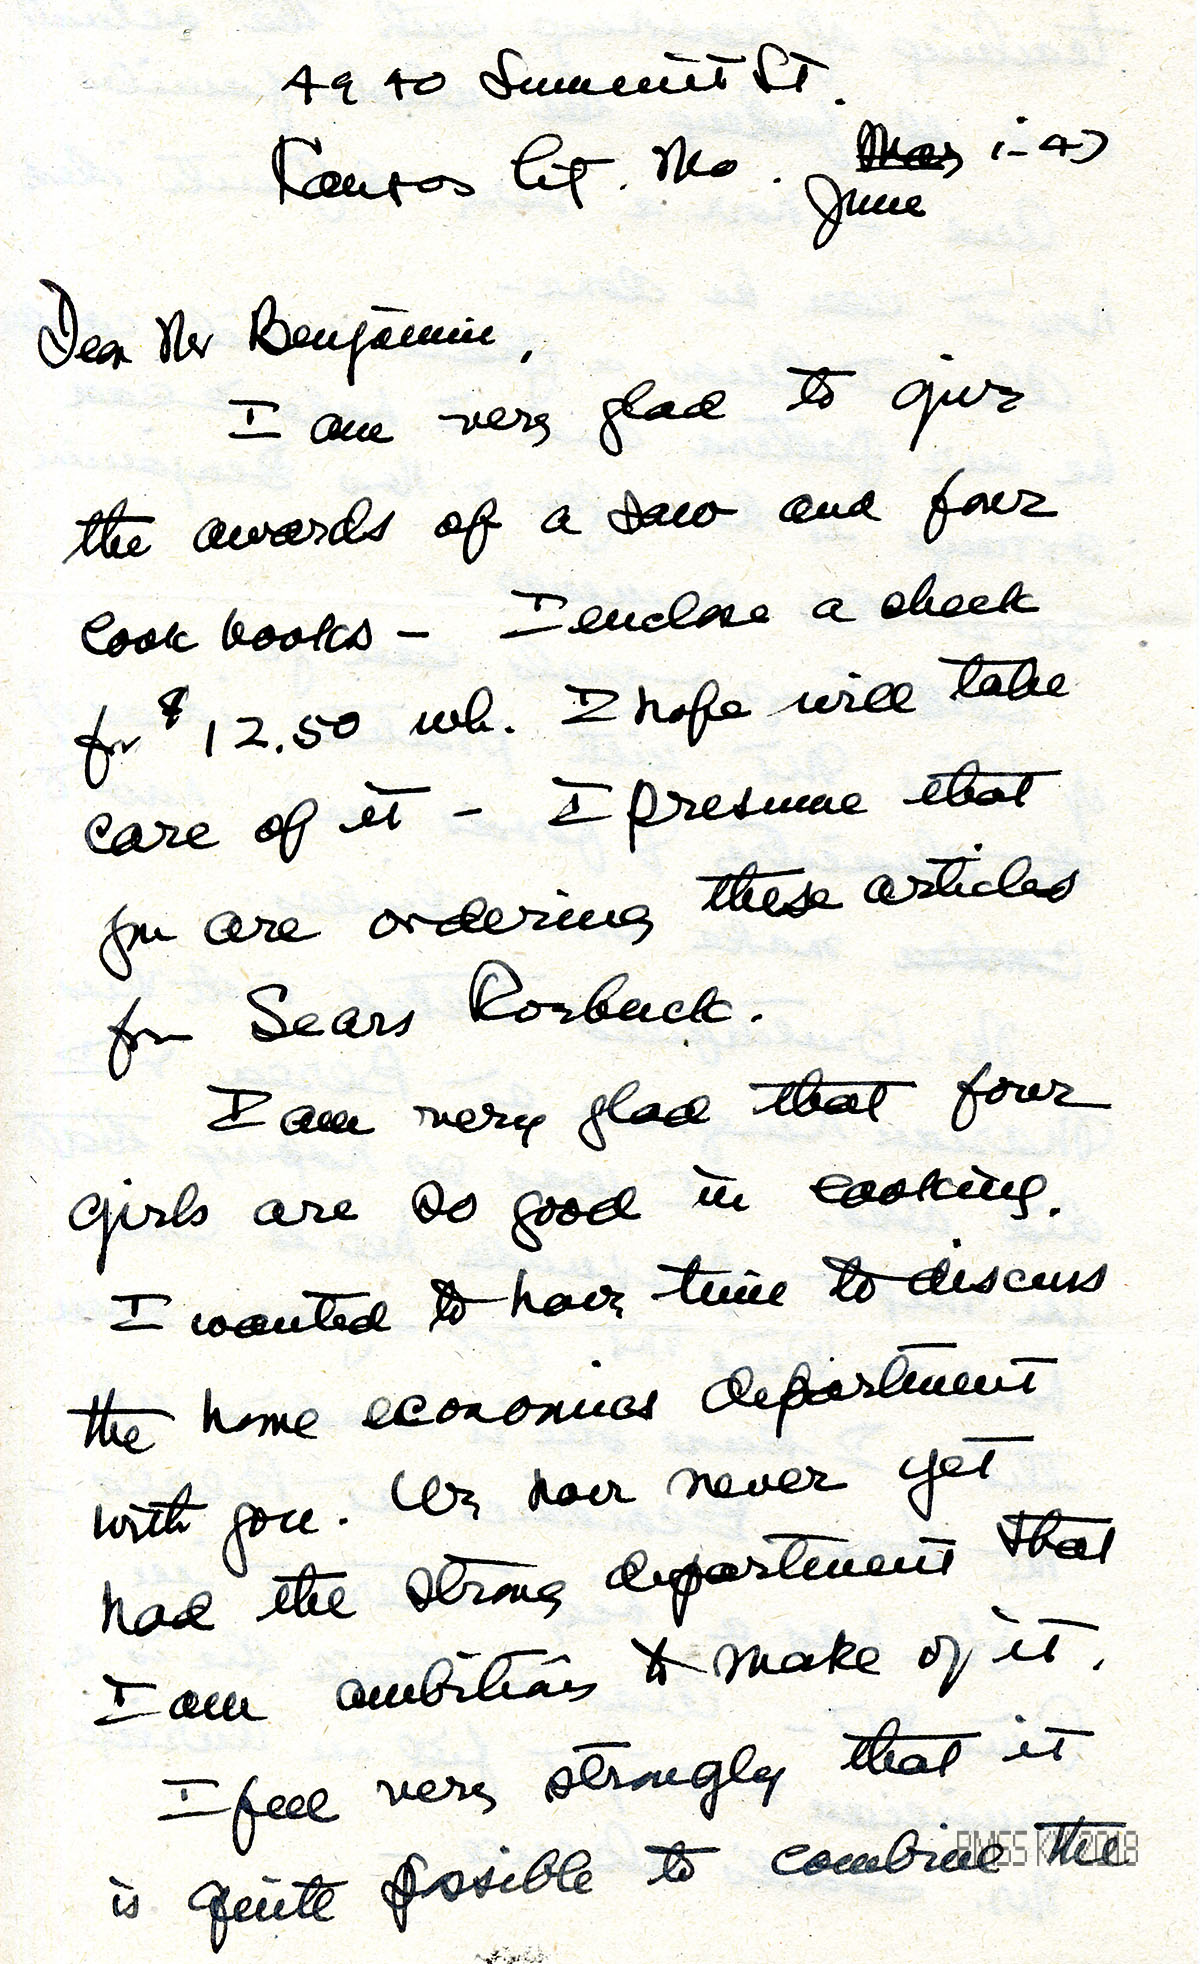 4940 Summit St.
Kansas City. Mo. May 1-47
June
Dear Mr Benjamin,
I am very glad to give
the awards of a saw and four
cook books – I enclose a check
for $12.50 wh. I hope will take
care of it – I presume that
you are ordering these articles
from Sears Roebuck.
I am very glad that four
girls are so good in cooking.
I wanted to have time to discuss
the home economics department
with you. We have never yet
had the strong department that
I am ambitious to make of it.
I feel very strongly that it
is quite possible to combine the
PMSS KY 2018